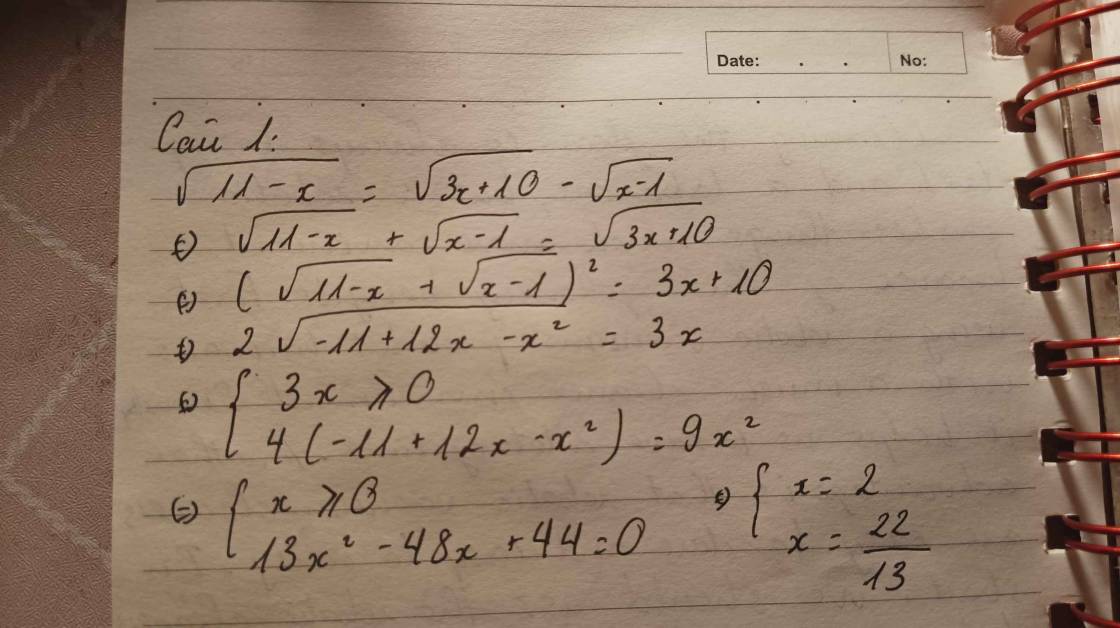 Date: . . No:
Câu 1:
√(11-x) = √(3x+10) - √(x-1)
⇔ √(11-x) + √(x-1) = √(3x+10)
⇔ (√(11-x) + √(x-1))² = 3x+10
⇔ 2√(-11+12x-x²) = 3x
⇔ { 3x ⩾ 0
4(-11+12x-x²) = 9x²
⇔ { x ⩾ 0
13x² - 48x + 44 = 0
⇔ { x = 2
x = 22/13